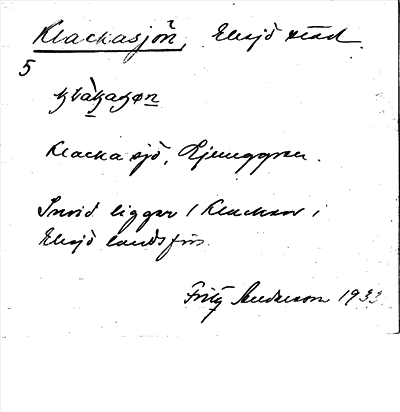 Klackasjön, Eksjö stad.
5
Klacka sjö, Ljunggren.
Invid ligger 1 Klackan i
Eksjö landsförs.
Fritz Anderson 1933